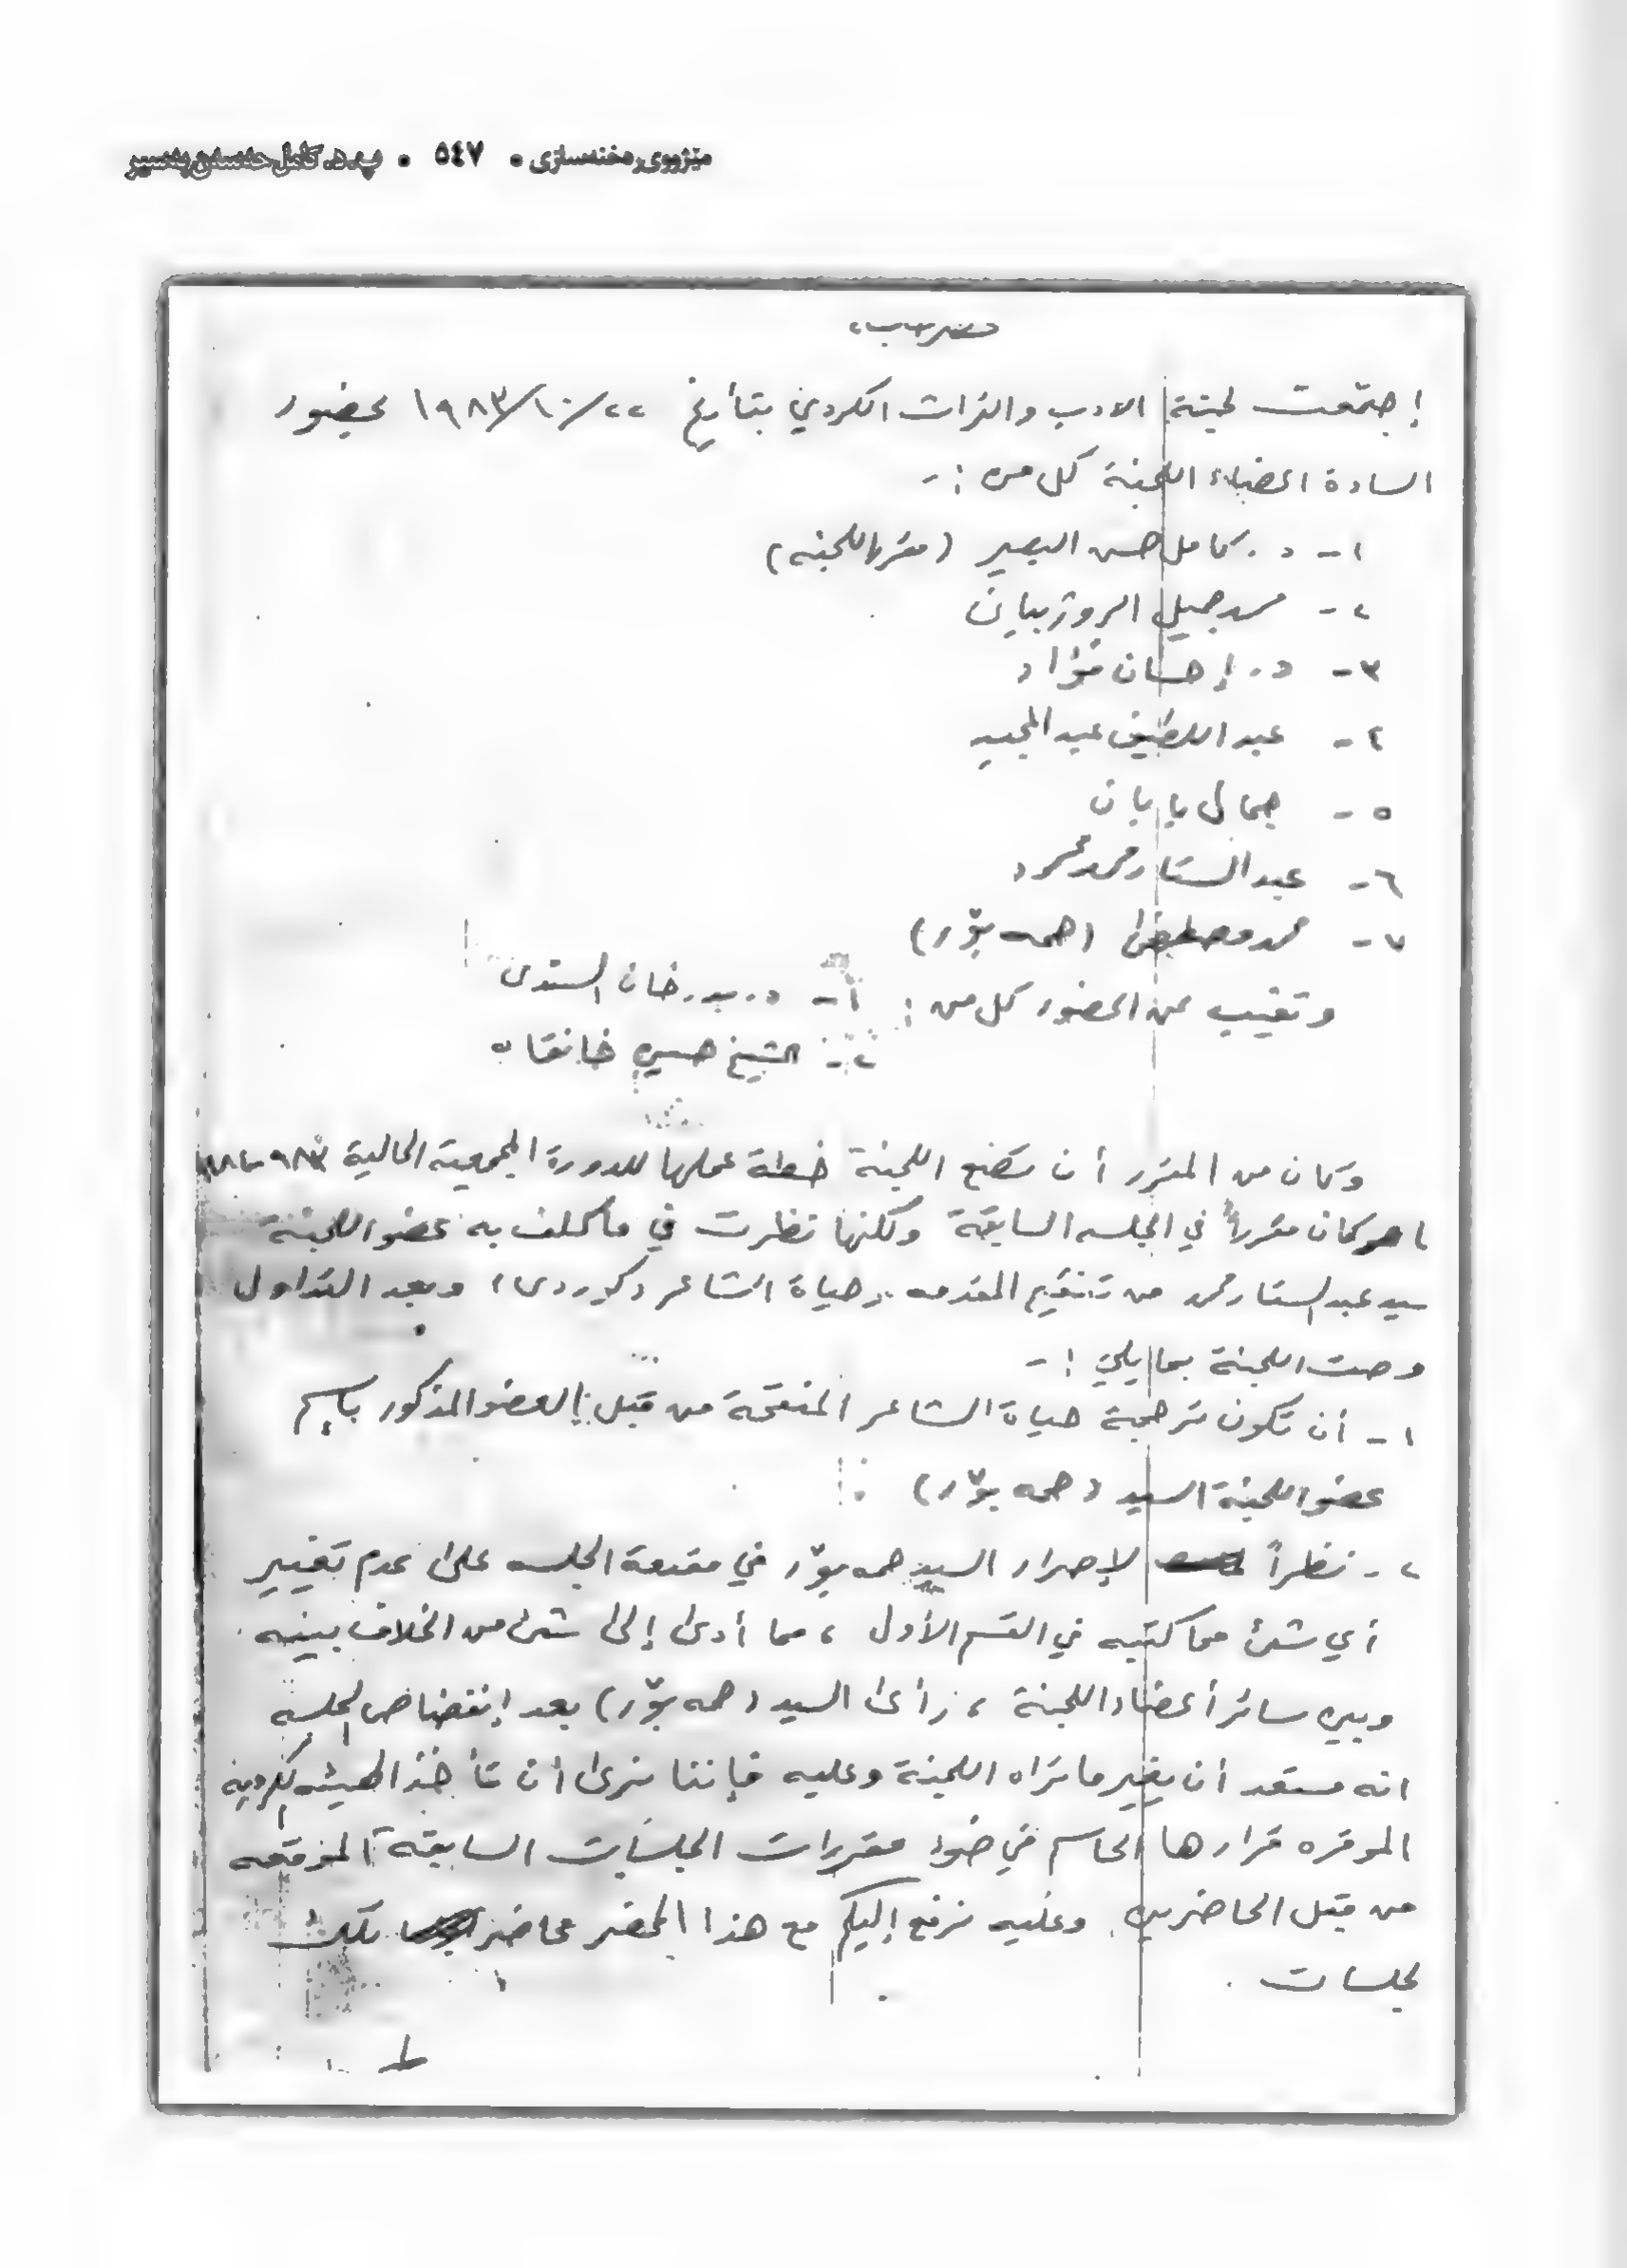 مێژووی ڕەخنەسازی • ٥٤٧ • پ.د. کامل حەسەن بەسیر
إجتمعت لجنة الادب والتراث الكردي بتأريخ ٢٢/١٠/١٩٨٣ بحضور
السادة اعضاء اللجنة كل من :-
١- د. كامل حسن البصير (مقرر اللجنه)
٢- محمد جميل الروژبياني
٣- د. إحسان فؤاد
٤- عبد اللطيف عبد المجيد
٥- جمال بابان
٦- عبد الستار محمد محمود
٧- محمد مصطفى (حمه بۆر)
وتغيب عن الحضور كل من : ١- د. بدرخان السندى
٢- الشيخ حسين خانقاه
وكان من المقرر أن تضع اللجنة خطة عملها للدورة المجمعية الحالية
ما هو كان مقرراً في الجلسه السابقة ولكنها نظرت في ما كلف به عضو اللجنة
سيد عبد الستار محمد من تنقيح المقدمه وحياة الشاعر (كوردى) وبعد التداول
وصت اللجنة بما يلي :-
١- أن تكون ترجمة حياة الشاعر المنقحة من قبل العضو المذكور بإسم
عضو اللجنة السيد (حمه بۆر)
٢- نظراً لإصرار السيد حمه بۆر في مقدمة الجلسه على عدم تغيير
أي شئ مما كتبه في القسم الأول ، مما أدى إلى شئ من الخلاف بينه
وبين سائر أعضاء اللجنة ، رأى السيد (حمه بۆر) بعد إنفضاض الجلسه
انه مستعد أن يغير ما تراه اللجنة وعليه فإننا نرى أن تأخذ الهيئه الكرديه
الموقره قرارها الحاسم في ضوء مقررات الجلسات السابقة الموقعه
من قبل الحاضرين وعليه نرفع إليكم مع هذا المحضر محاضر تلك
لجلسات .